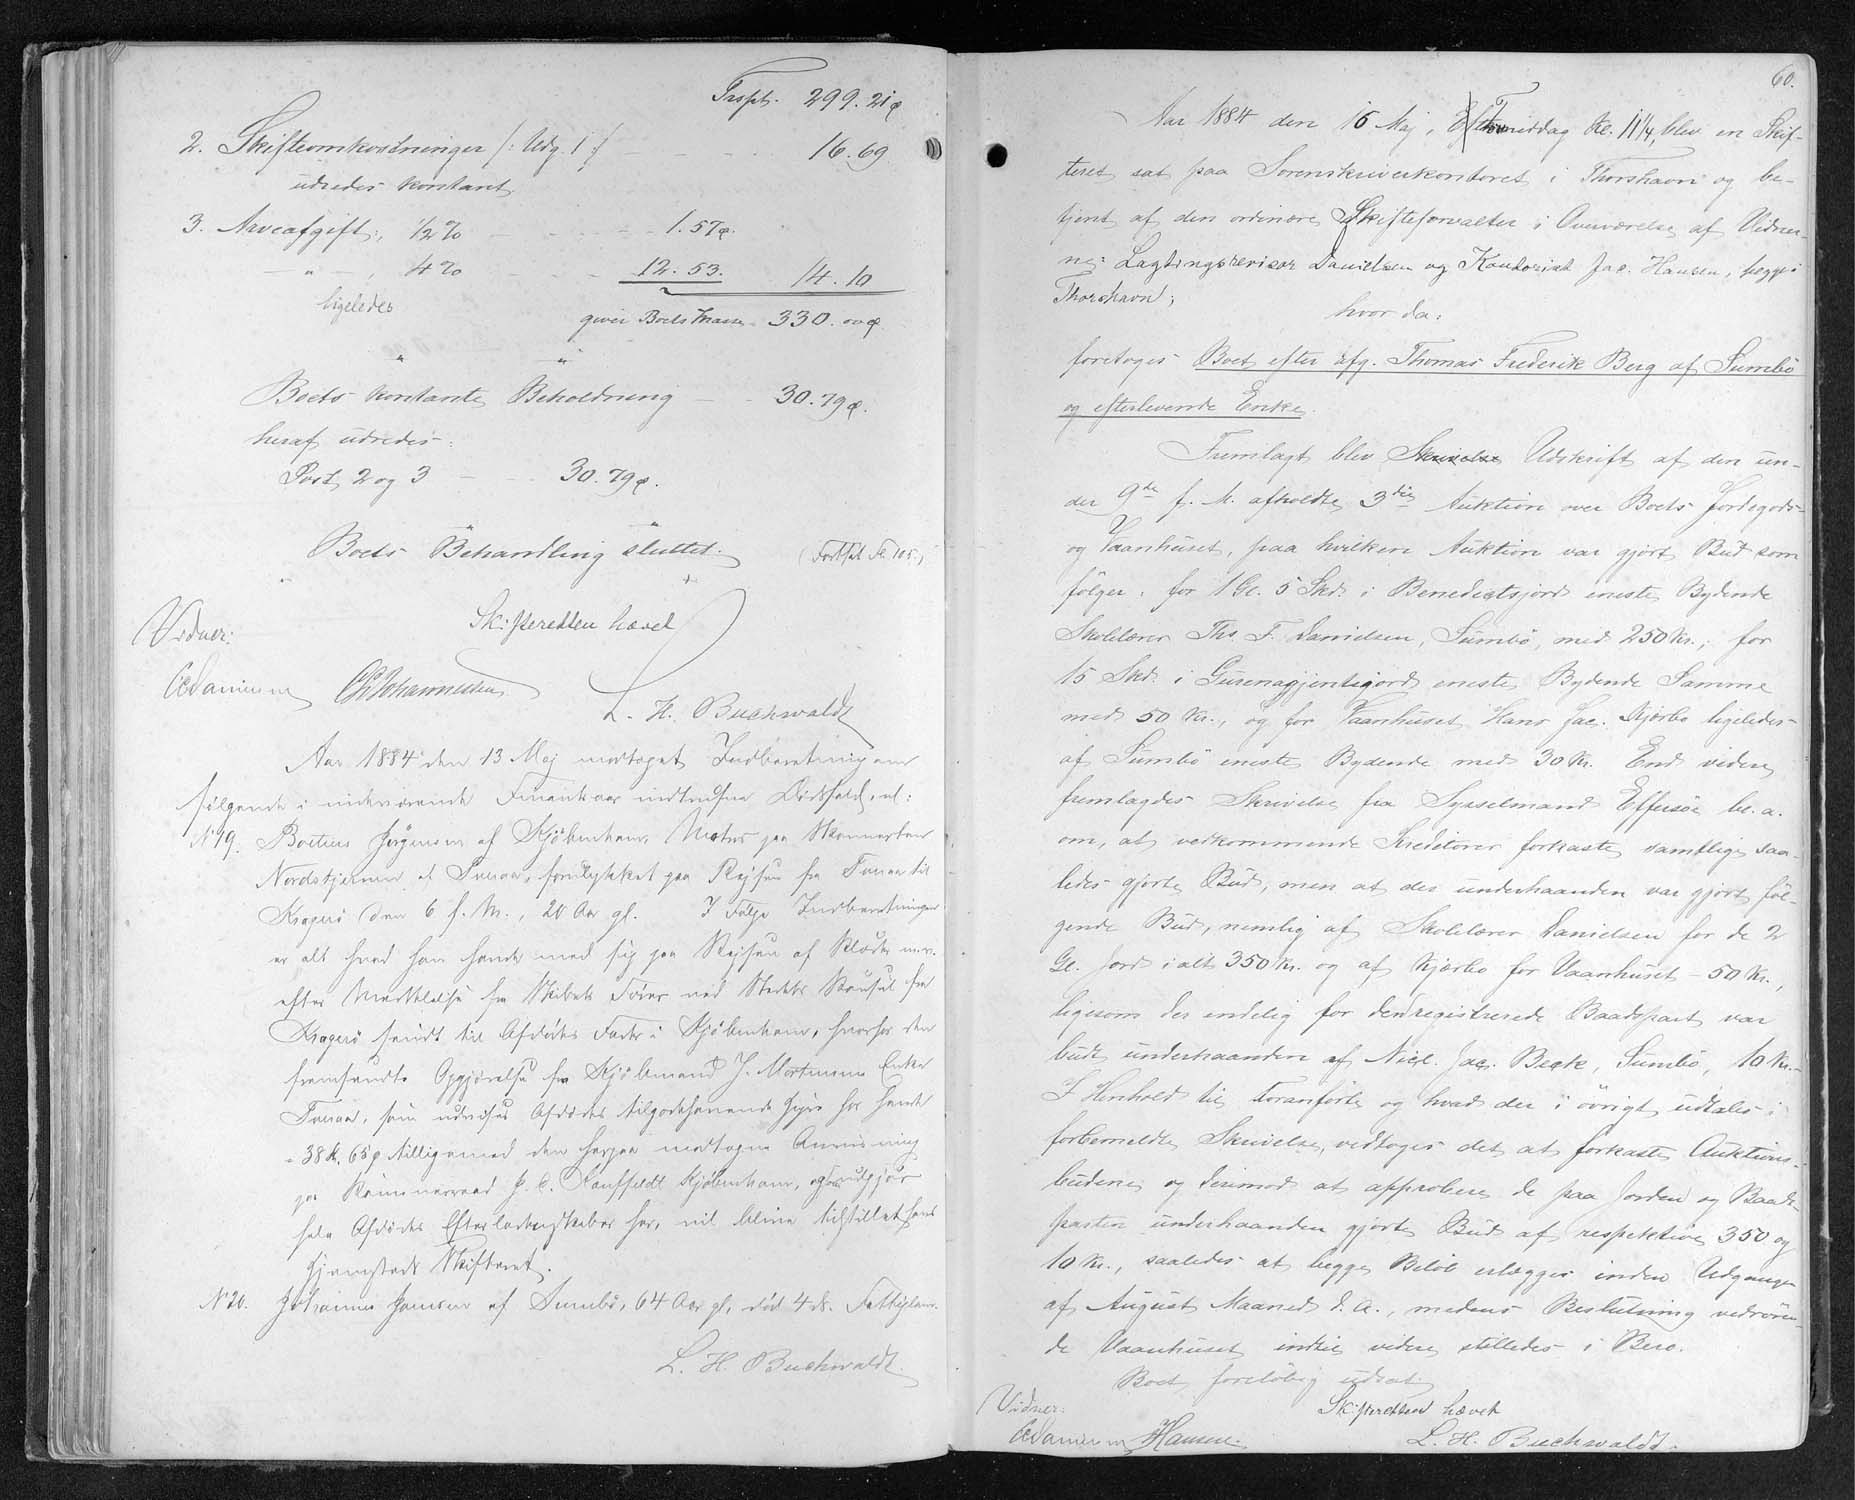 Trspt. 299. 21 ø
2. Skifteomkostninger /: Udg. 1 :/ 16. 69
udredes kontant
3. Arveafgift:, 1/2 % 1. 57 ø.
- " - , 4 % 12. 53. 14. 10
ligeledes
giver Boets Masse 330. 00 ø
" "
Boets kontante Beholdning 30. 79 ø.
heraf udredes:
Post 2 og 3 30. 79 ø.
Boets Behandling sluttet. (Fortsat Fol. 105.)
Skifteretten hævet
Vidner:
Danielsen Johannessen
L. H. Buchwaldt
Aar 1884 den 13 Maj modtoges Indberetning om
følgende i indeværende Finantsaar indtrufne Dødsfald, nl:
No 19. Joensen af Kjøbenhavn, Matros paa Skonnerten
Nordstjernen af Tveraa, forulykket paa Rejsen fra Tveraa til
Kragerö den 6 f. M., 20 Aar gl. I Følge Indberetningen
er alt hvad han havde med sig paa Rejsen af Klæder m.v.
efter Meddelelse fra Skibets Fører ved Stedets Konsul fra
Kragerö sendt til Afdødes Fader i Kjøbenhavn, hvorfor den
fremsendte Opgjørelse fra Kjøbmand J. Mortensens Enke
Tveraa, som udviser Afdødes tilgodehavende Hyre hos hende
- 38 K. 65 ø tilligemed den herpaa modtagne Anvisning
paa Kammerraad Kjøbenhavn, udgjør
hele Afdødes Efterladenskaber her, vil blive tilstillet hans
Hjemsteds Skifteret.
No 20. Johannes Hansen af Sumbö, 64 Aar gl, død 4 ds. Fattiglem.
L. H. Buchwaldt.
60.
Aar 1884 den 15 Maj, Formiddag Kl. 11 1/4, blev en Skif-
teret sat paa Sorenskriverkontoret i Thorshavn og be-
tjent af den ordinære Skifteforvalter i Overværelse af Vidner-
ne: Lagtingsrevisor Danielsen og Kontorist Jac. Hansen, begge i
Thorshavn;
hvor da:
foretoges Boet efter afg. Thomas Frederik Berg af Sumbö
og efterlevende Enke.
Fremlagt blev Skrivelse Udskrift af den un-
der 9de f. M. afholdte 3die Auktion over Boets Jordegods
og Vaanhuset, paa hvilken Auktion var gjört Bud som
fölger: for 1 Gl. 5 Skd. i Benedictsjord eneste Bydende
Skolelærer Ths. F. Danielsen, Sumbö, med 250 Kr.; for
15 Skd. i eneste Bydende Samme
med 50 Kr., og for Vaanhuset Hans Jac. Kjærbo ligeledes
af Sumbö eneste Bydende med 30 Kr. End videre
fremlagdes Skrivelse fra Sysselmand Effersöe bl. a.
om, at vedkommende Kreditorer forkaste samtlige saa-
ledes gjorte Bud, men at der underhaanden var gjört föl-
gende Bud, nemlig af Skolelærer Danielsen for de 2
Gl. Jord i alt 350 Kr. og af Kjærbo for Vaanhuset - 50 Kr.,
ligesom der endelig for den registrerede Baadspart var
budt underhaanden af Nicl. Jac. Beck, Sumbö, 10 Kr.-
I Henhold til Foranförte og hvad der i övrigt udtales i
forbemeldte Skrivelse, vedtoges det at forkaste Auktions-
budene og derimod at approbere de paa Jorden og Baads-
parten underhaanden gjorte Bud af respektive 350 og
10 Kr., saaledes at begge Belöb erlægges inden Udgangen
af August Maaned d. A., medens Beslutning vedrören-
de Vaanhuset indtil videre stilledes i Bero.
Boet forelöbig udsat.
Skifteretten hævet
Vidner:
Danielsen JHansen.
L. H. Buchwaldt.